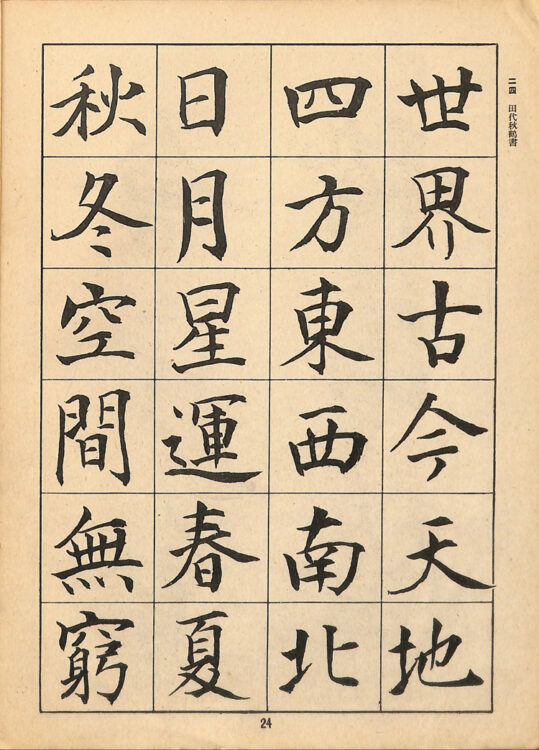 二四 田代秋鶴書
世界古今天地
四方東西南北
日月星運春夏
秋冬空間無窮
24